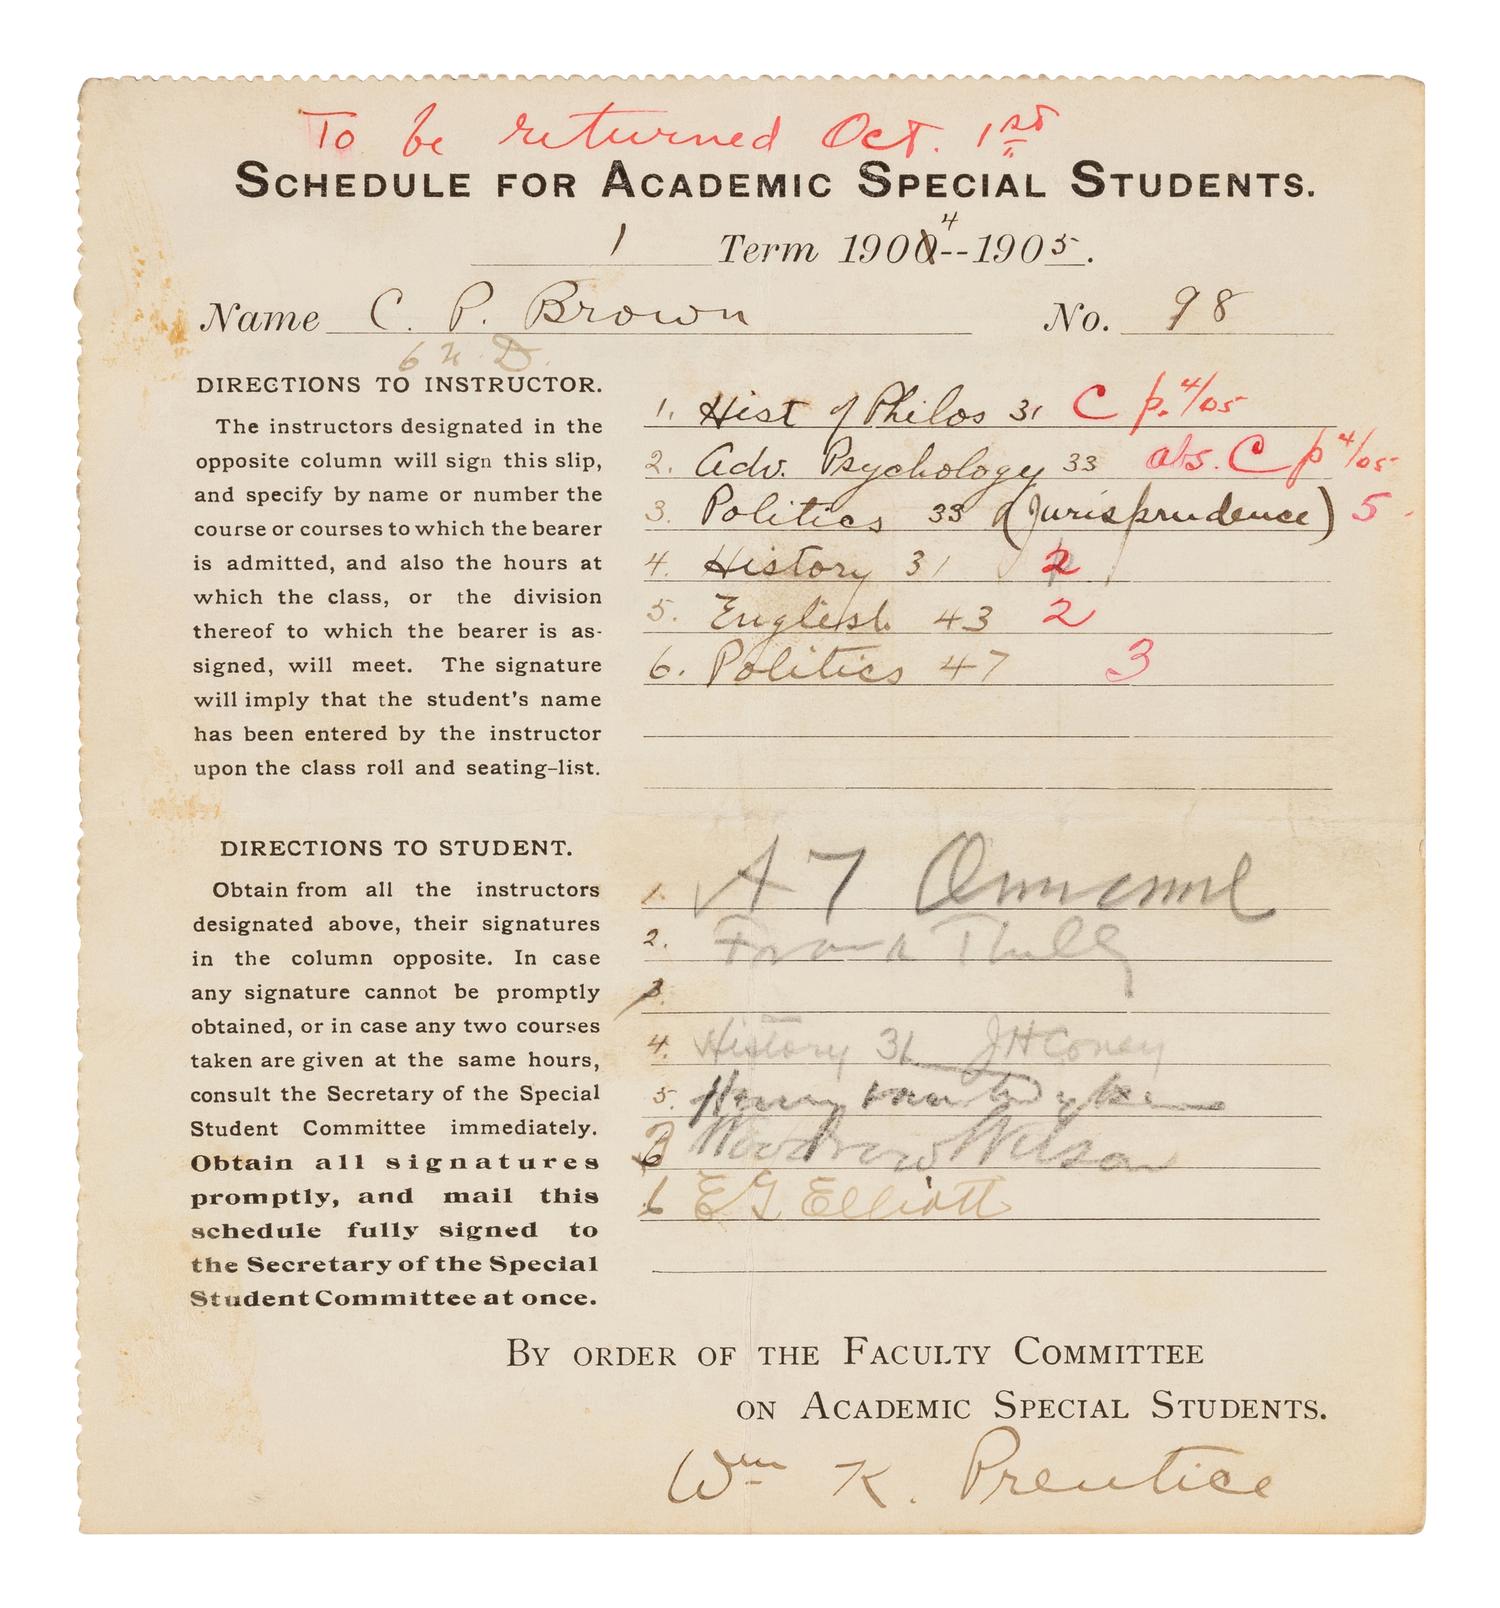 To be returned Oct. 1st
SCHEDULE FOR ACADEMIC SPECIAL STUDENTS.
1 Term 1900 4--1905.
Name C. P. Brown No. 98
DIRECTIONS TO INSTRUCTOR.
The instructors designated in the
opposite column will sign this slip,
and specify by name or number the
course or courses to which the bearer
is admitted, and also the hours at
which the class, or the division
thereof to which the bearer is as-
signed, will meet. The signature
will imply that the student's name
has been entered by the instructor
upon the class roll and seating-list.
1. Hist of Philos 31 C p. 4/05
2. Adv. Psychology 33 abs. C p 4/05
3. Politics 33 (Jurisprudence) 5
4. History 31 2
5. English 43 2
6. Politics 47 3
DIRECTIONS TO STUDENT.
Obtain from all the instructors
designated above, their signatures
in the column opposite. In case
any signature cannot be promptly
obtained, or in case any two courses
taken are given at the same hours,
consult the Secretary of the Special
Student Committee immediately.
Obtain all signatures
promptly, and mail this
schedule fully signed to
the Secretary of the Special
Student Committee at once.
1. A T Ormond
2. Frank Thilly
3.
4. History 31 J H Coney
5. Henry van Dyke
Woodrow Wilson
6 E G Elliott
BY ORDER OF THE FACULTY COMMITTEE
ON ACADEMIC SPECIAL STUDENTS.
Wm K. Prentice